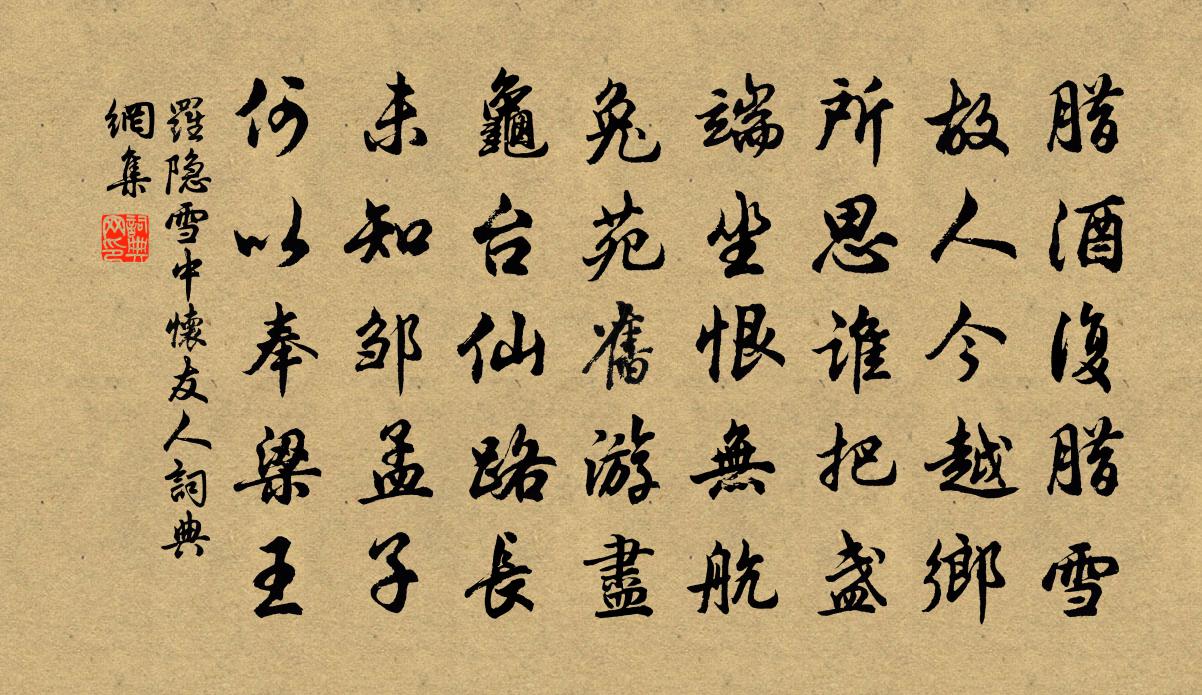 腊酒復腊雪
故人今越鄉
所思谁把盏
端坐恨無航
兔苑舊游盡
龜台仙路長
未知邹孟子
何以奉梁王
羅隐雪中懷友人詞典
網集
詞典
网印